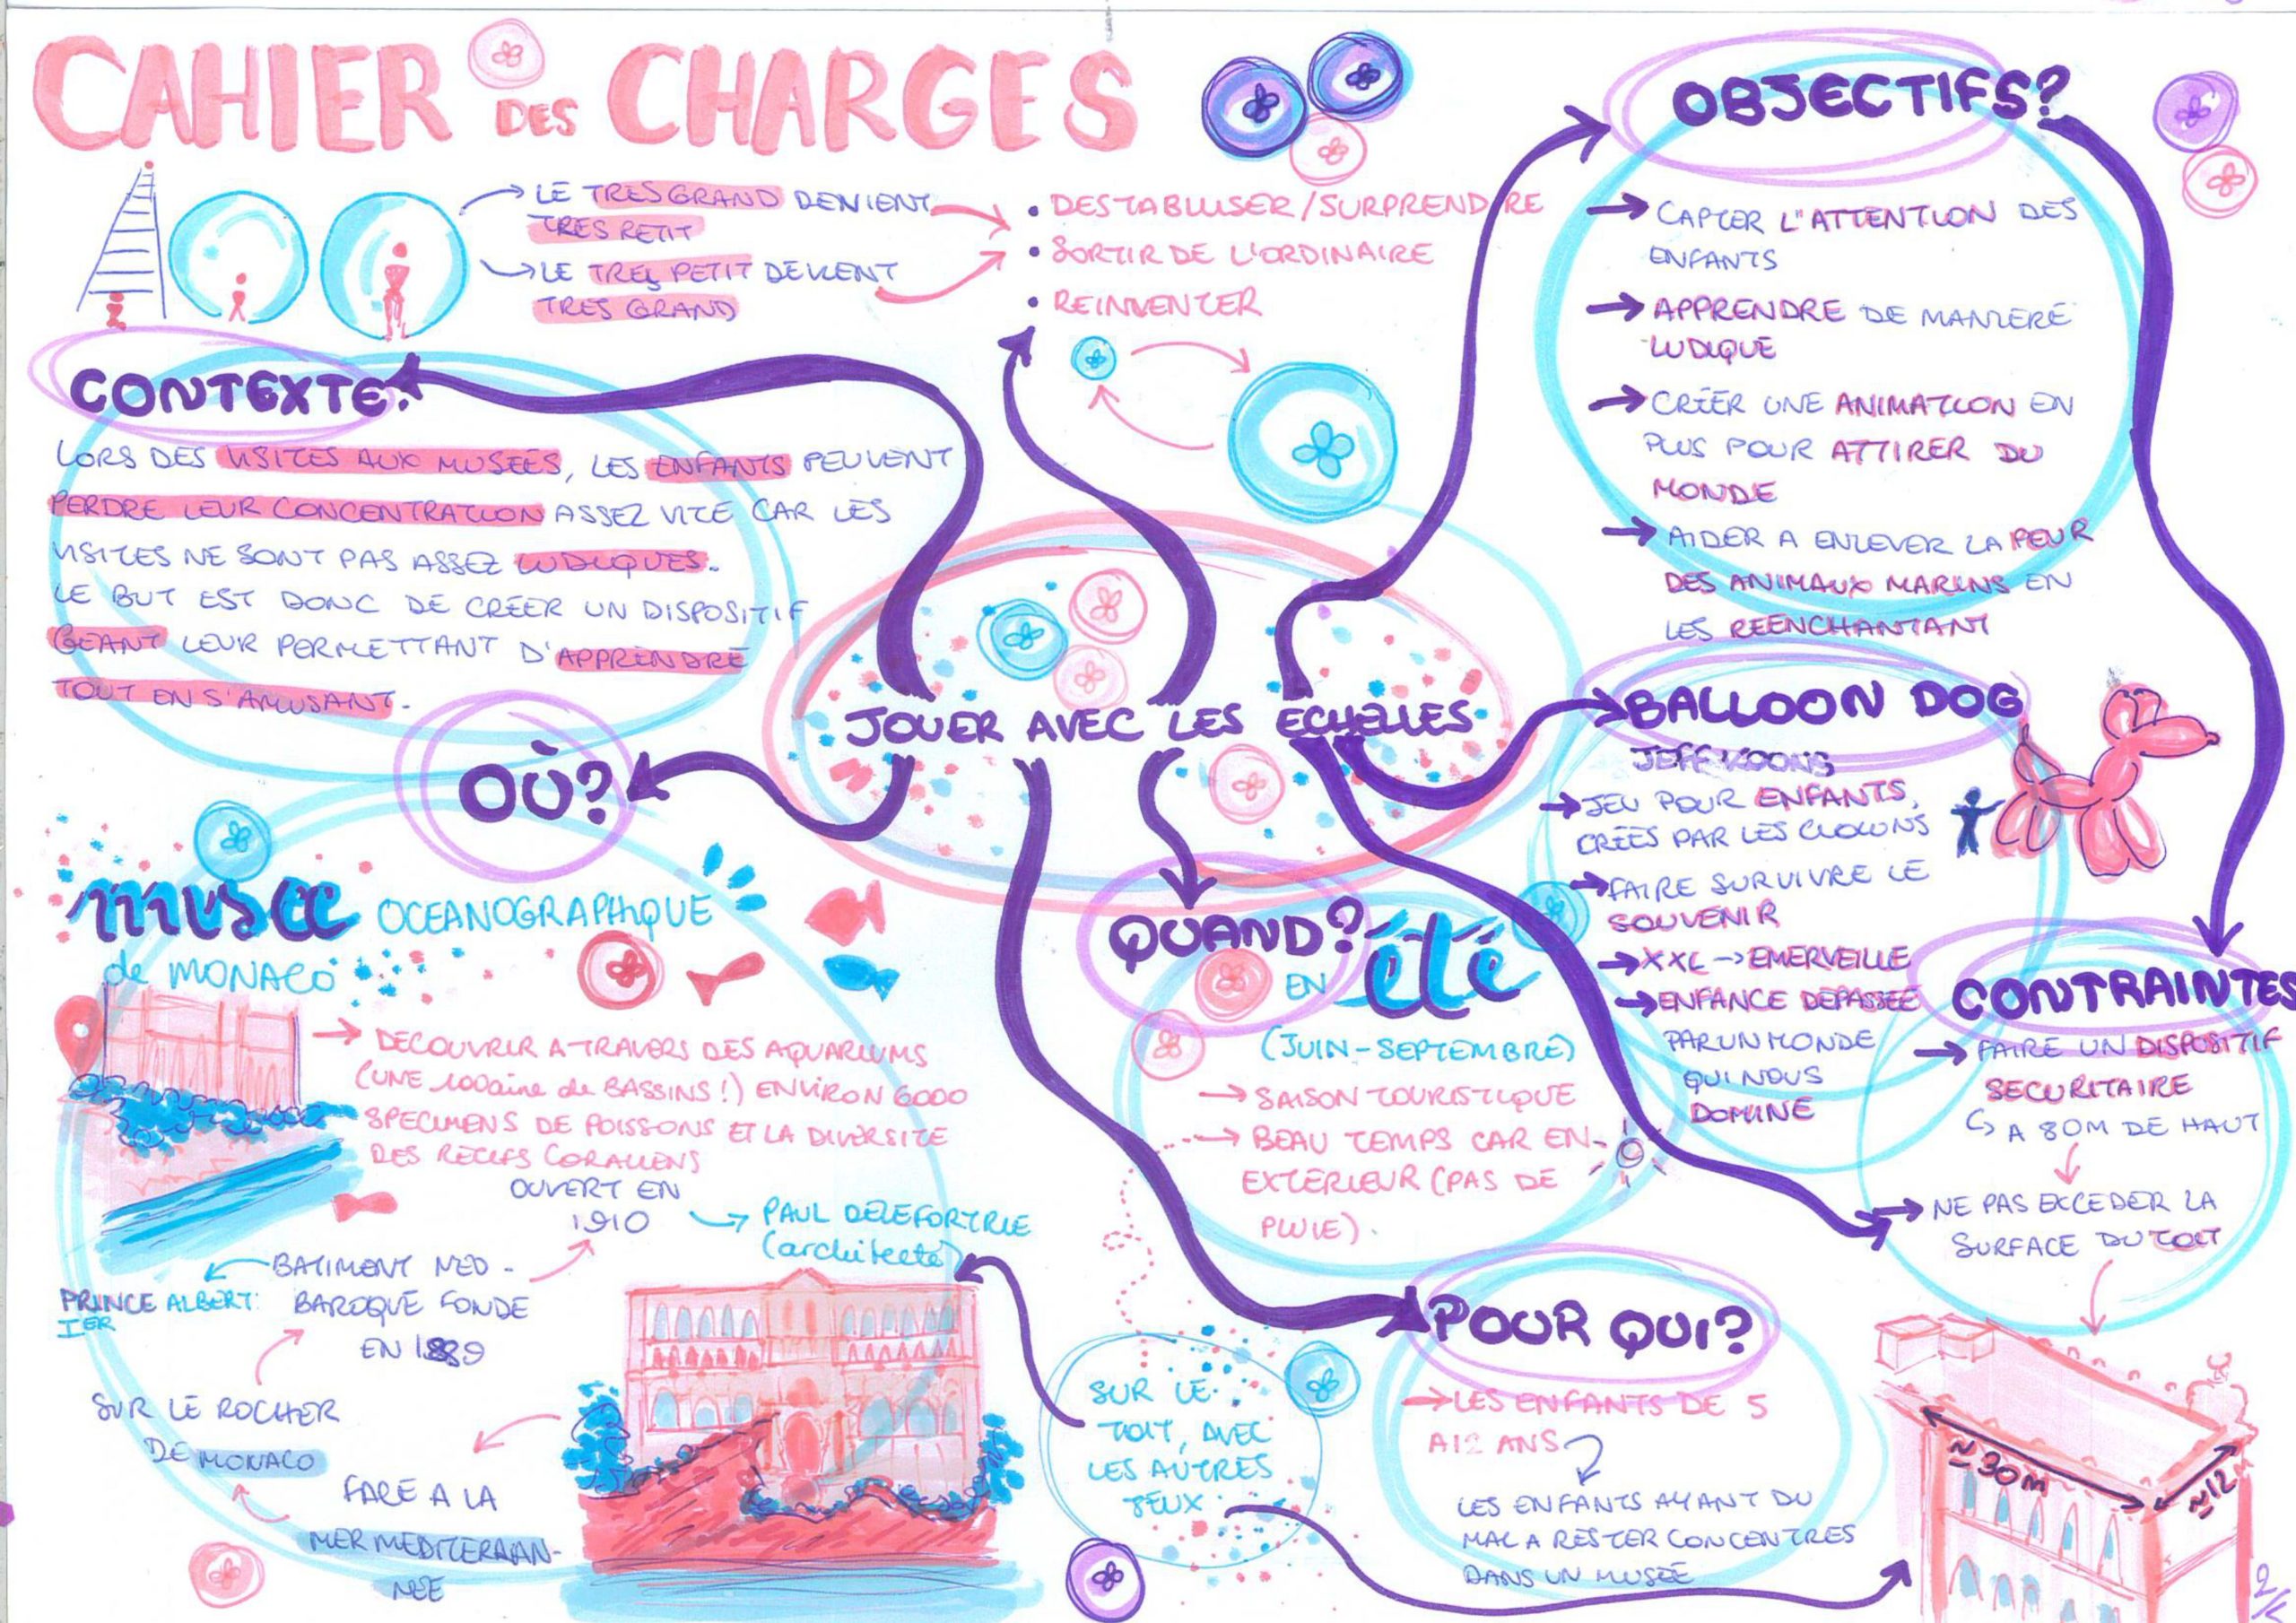 CAHIER DES CHARGES
LE TRES GRAND DEVIENT
TRES PETIT
LE TRES PETIT DEVIENT
TRES GRAND
• DESTABILISER / SURPRENDRE
• SORTIR DE L'ORDINAIRE
• REINVENTER
CONTEXTE?
LORS DES VISITES AUX MUSEES, LES ENFANTS PEUVENT
PERDRE LEUR CONCENTRATION ASSEZ VITE CAR LES
VISITES NE SONT PAS ASSEZ LUDIQUES.
LE BUT EST DONC DE CRÉER UN DISPOSITIF
GEANT LEUR PERMETTANT D'APPRENDRE
TOUT EN S'AMUSANT.
OBJECTIFS?
→ CAPTER L'ATTENTION DES
ENFANTS
→ APPRENDRE DE MANIERE
LUDIQUE
→ CRÉER UNE ANIMATION EN
PLUS POUR ATTIRER DU
MONDE
→ AIDER A ENLEVER LA PEUR
DES ANIMAUX MARINS EN
LES REENCHANTANT
JOUER AVEC LES ECHELLES
BALLOON DOG
JEFF KOONS
→ JEU POUR ENFANTS,
CRÉES PAR LES CLOWNS
→ FAIRE SURVIVRE LE
SOUVENIR
→ XXL → EMERVEILLE
→ ENFANCE DEPASSEE
PAR UN MONDE
QUI NOUS
DOMINE
OÙ?
musee OCEANOGRAPHIQUE
de MONACO
→ DECOUVRIR A TRAVERS DES AQUARIUMS
(UNE 100aine de BASSINS!) ENVIRON 6000
SPECIMENS DE POISSONS ET LA DIVERSITE
DES RECIFS CORALLIENS
OUVERT EN
1910
PAUL DELEFORTRIE
(architecte)
BATIMENT NEO-
BAROQUE FONDE
EN 1889
PRINCE ALBERT
IER
SUR LE ROCHER
DE MONACO
FACE A LA
MER MEDITERRAN-
NEE
QUAND?
EN été
(JUIN-SEPTEMBRE)
→ SAISON TOURISTIQUE
→ BEAU TEMPS CAR EN-
EXTERIEUR (PAS DE
PLUIE).
CONTRAINTES
→ FAIRE UN DISPOSITIF
SECURITAIRE
↳ A 80M DE HAUT
→ NE PAS EXCEDER LA
SURFACE DU TOIT
SUR LE
TOIT, AVEC
LES AUTRES
JEUX
POUR QUI?
→ LES ENFANTS DE 5
A 12 ANS
LES ENFANTS AYANT DU
MAL A RESTER CONCENTRES
DANS UN MUSEE
≈30M
≈12